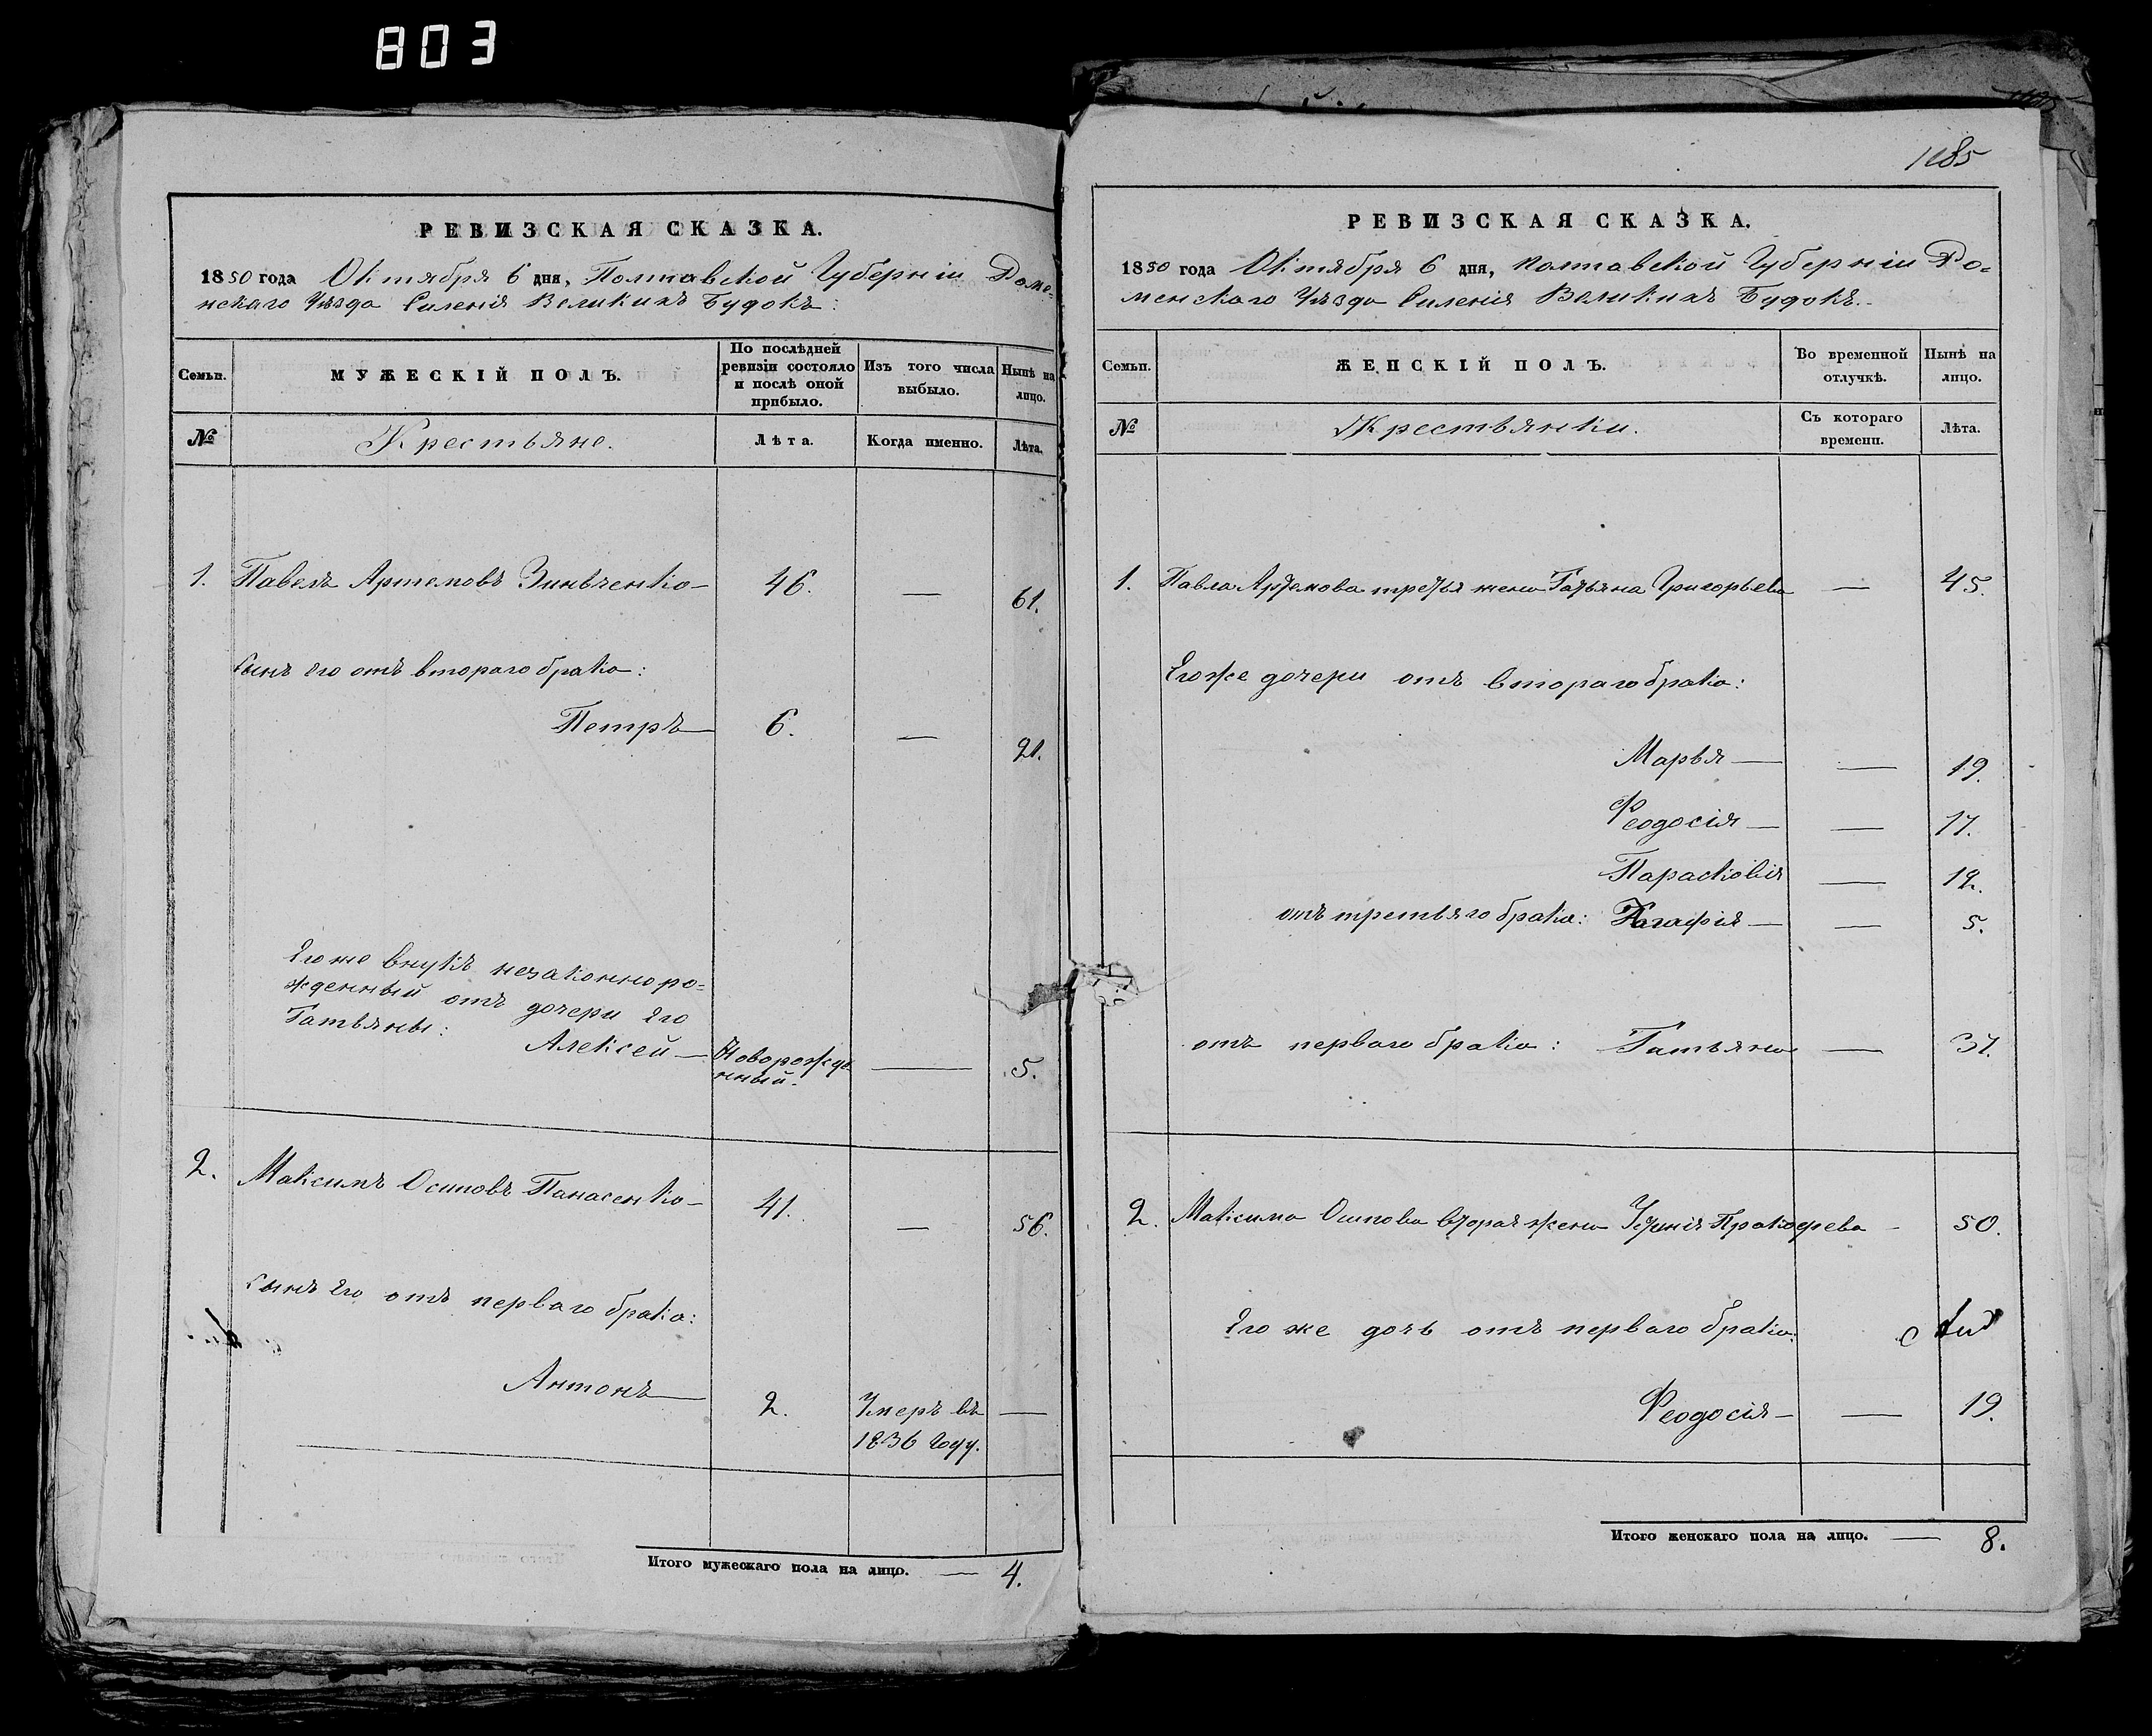 803
РЕВИЗСКАЯ СКАЗКА.
1850 года Октября 6 дня, Полтавской Губерніи Роме-
нскаго Уѣзда Селенія Великихъ Будокъ:
Семьи.
МУЖЕСКІЙ ПОЛЪ.
По послѣдней ревизіи состояло и послѣ оной прибыло.
Изъ того числа выбыло.
Нынѣ на лицо.
№
Крестьяне.
Лѣта.
Когда именно.
Лѣта.
1. Павелъ Артемовъ Зинвченко — 46. — 61.
Сынъ его отъ втораго брака:
Петръ — 6. — 21.
Его же внукъ незаконноро-
жденный отъ дочери Его
Татьяны:
Алексей — Новорожде
нный. — 5.
2. Максимъ Осиповъ Панасенко — 41. — 56.
Сынъ Его отъ перваго брака:
Антонъ — 2. Умеръ въ —
1836 году.
Итого мужескаго пола на лицо. — 4.
1185
РЕВИЗСКАЯ СКАЗКА.
1850 года Октября 6 дня, Полтавской Губерніи Ро-
менскаго Уѣзда Селенія Великихъ Будокъ.
Семьи.
ЖЕНСКІЙ ПОЛЪ.
Во временной отлучкѣ.
Нынѣ на лицо.
№
Крестьянки.
Съ котораго времени.
Лѣта.
1. Павла Артемова третья жена Татьяна Григорьева — 45.
Его же дочери отъ втораго брака:
Марья — — 19.
Феодосія — — 17.
Парасковія — 12.
отъ третьяго брака: Агафія — — 5.
отъ перваго брака: Татьяна — 31.
2. Максима Осипова вторая жена Прокофева - 50.
Его же дочь отъ перваго брака:
Феодосія — — 19.
Итого женскаго пола на лицо. — 8.